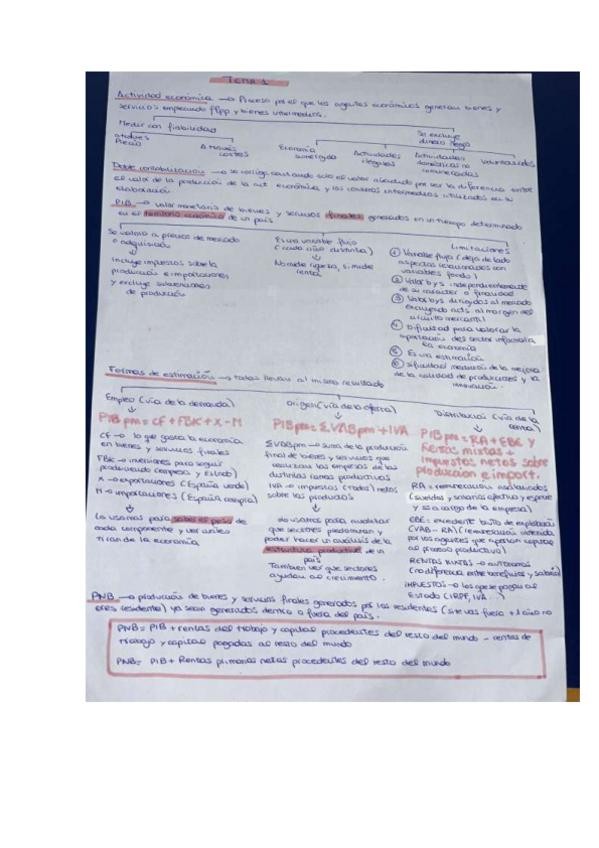 TEMA 1
Actividad económica → Proceso por el que los agentes económicos generan bienes y
servicios empleando ffpp y bienes intermedios.
Medir con fiabilidad
Se excluye
dinero negro
a través
Precio
A través
costes
Economía
sumergida
Actividades
ilegales
Actividades
domésticas no
remuneradas
Voluntariados
Doble contabilización → se corrige contando solo el valor añadido por ser la diferencia entre
el valor de la producción de la act. económica y los consumos intermedios utilizados en su
elaboración
PIB → valor monetario de bienes y servicios finales generados en un tiempo determinado
en el territorio económico de un país
Se valora a precios de mercado
o adquisición
Incluye impuestos sobre la
producción e importaciones
y excluye subvenciones
de producción
Es una variable flujo
(cada año distinta)
No mide riqueza, si mide
renta
Limitaciones
① Variable flujo (deja de lado
aspectos relacionados con
variables fondo)
② Valor bys independientemente
de su carácter o finalidad
③ Valor bys dirigidos al mercado
excluyendo acts. al margen del
circuito mercantil
④ Dificultad para valorar la
aportación del sector
la economía
⑤ Es una estimación
⑥ Dificultad medición de la mejora
de la calidad de producciones y la
innovación.
Formas de estimación → todas llevan al mismo resultado
Empleo (vía de la demanda)
PIB pm = CF + FBK + X - M
CF → lo que gasta la economía
en bienes y servicios finales
FBK → inversiones para seguir
produciendo (empresa y Estado)
X → exportaciones (España vende)
M → importaciones (España compra)
La usamos para saber el peso de
cada componente y ver cuáles
tiran de la economía
Origen (vía de la oferta)
PIB pm = ΣVABpm + IVA
ΣVABpm → suma de la producción
final de bienes y servicios que
realizan las empresas de las
distintas ramas productivas
IVA → impuestos (todos) netos
sobre los productos
La usamos para analizar
que sectores predominan y
poder hacer un análisis de la
estructura productiva de un
país
También ver que sectores
ayudan al crecimiento.
Distribución (vía de la
renta)
PIB pm = RA + EBE y
Rentas mixtas +
impuestos netos sobre
producción e import.
RA = remuneración asalariados
(sueldos y salarios efectivo y especie
y ss a cargo de la empresa)
EBE = excedente bruto de explotación
(VAB - RA) (remuneración obtenida
por los agentes que aportan capital
al proceso productivo)
RENTAS MIXTAS → autónomos
(no diferencia entre beneficios y salario)
IMPUESTOS → los que se pagan al
Estado (IRPF, IVA...)
PNB → producción de bienes y servicios finales generados por los residentes (si te vas fuera + 1 año no
eres residente) ya sean generados dentro o fuera del país.
PNB = PIB + rentas del trabajo y capital procedentes del resto del mundo - rentas de
trabajo y capital pagadas al resto del mundo
PNB = PIB + Rentas primarias netas procedentes del resto del mundo